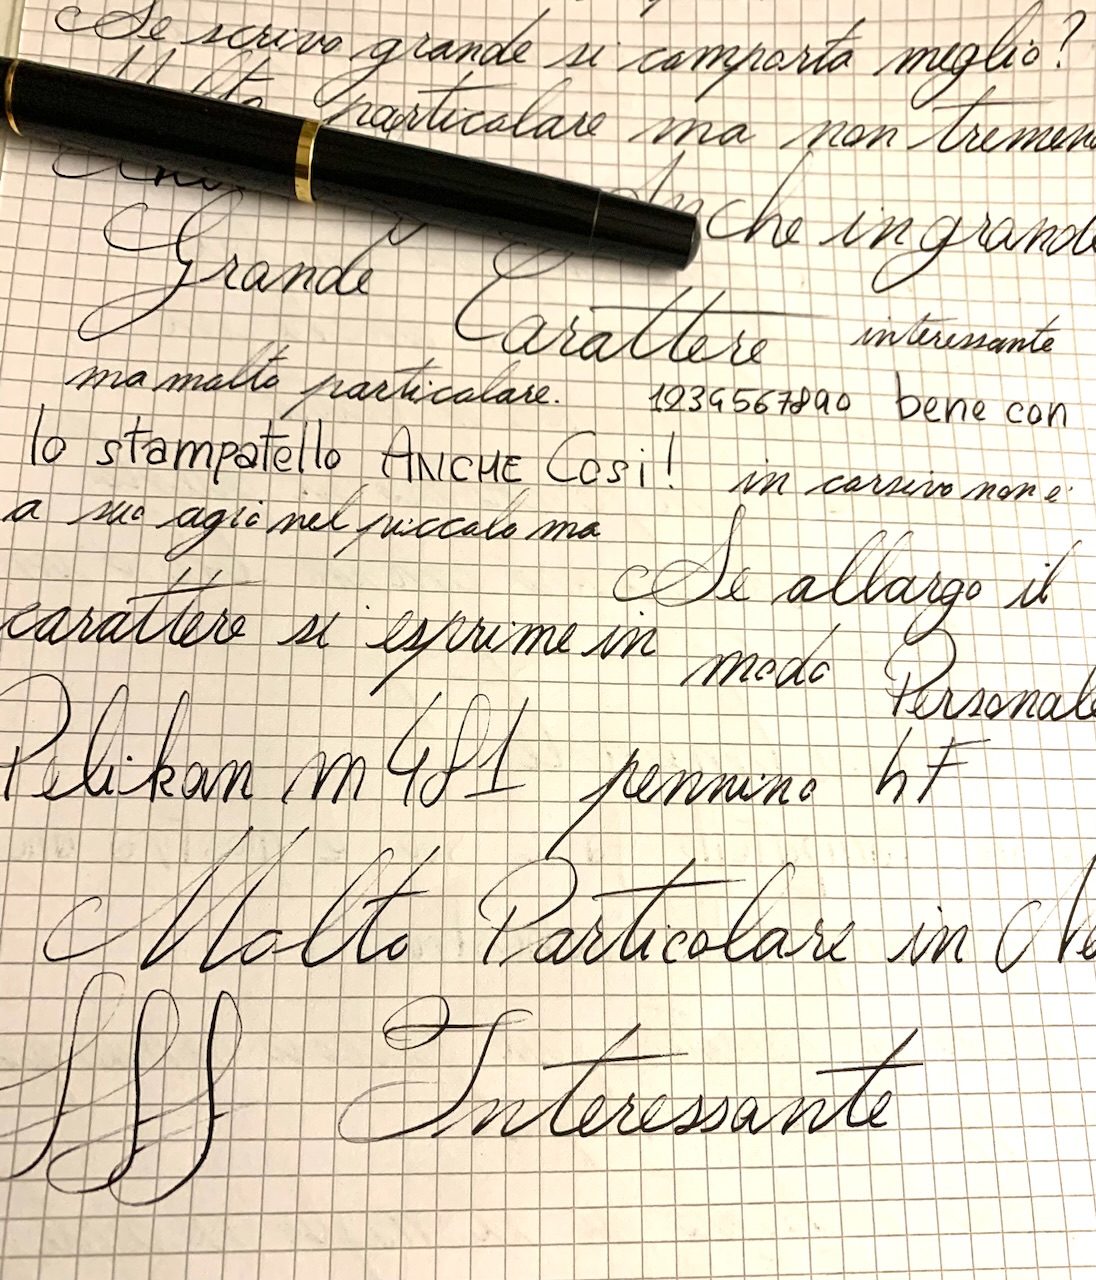 Se scrivo grande si comporta meglio?
Molto particolare ma non tremen
Anche in grande
Grande Carattere interessante
ma molto particolare. 1234567890 bene con
lo stampatello ANCHE Cosi! in corsivo non e'
a suo agio nel piccolo ma
Se allargo il
carattere si esprime in modo Personale
Pelikan m481 pennino hF
Molto Particolare in Ne
fff Interessante